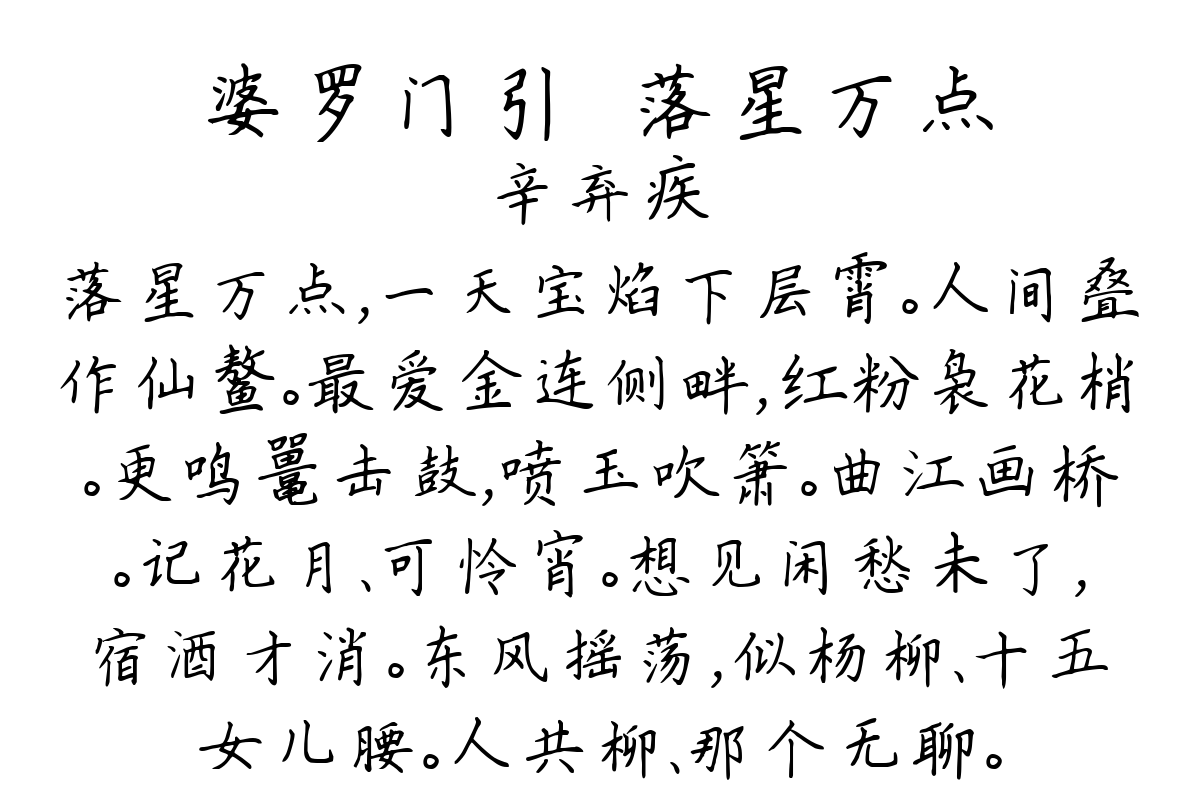 婆罗门引 落星万点
辛弃疾
落星万点,一天宝焰下层霄。人间叠
作仙鳌。最爱金连侧畔,红粉袅花梢
。更鸣鼍击鼓,喷玉吹箫。曲江画桥
。记花月、可怜宵。想见闲愁未了,
宿酒才消。东风摇荡,似杨柳、十五
女儿腰。人共柳、那个无聊。